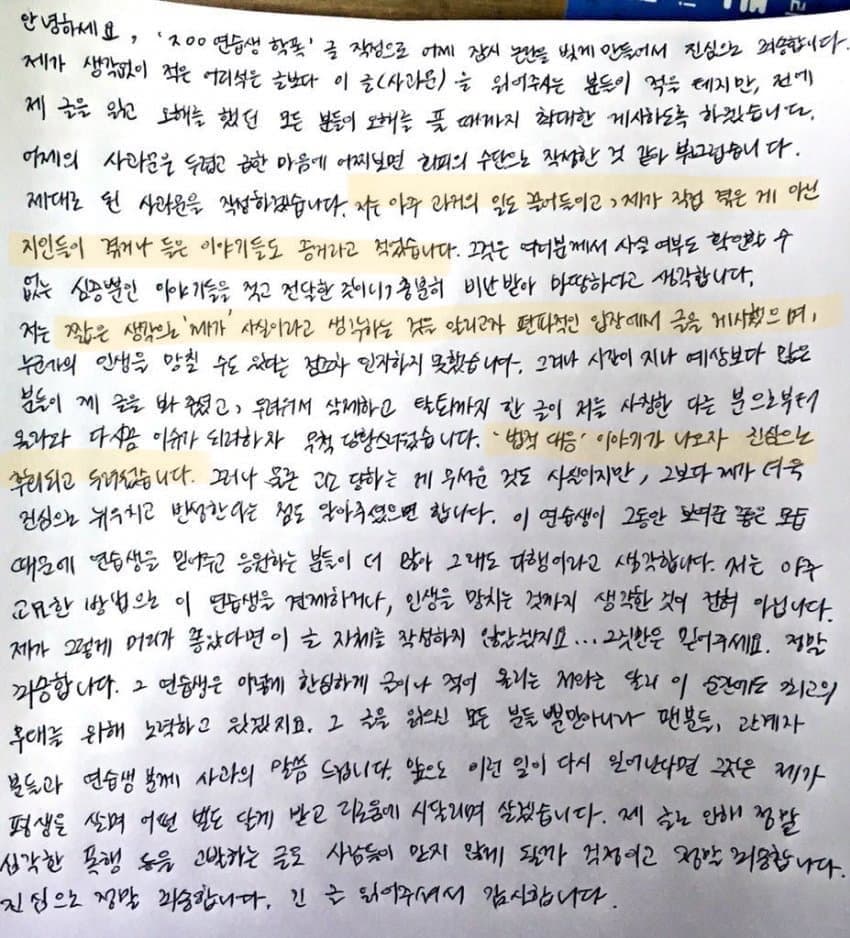 안녕하세요, 'ㅈOO 연습생 학폭' 글 작성으로 어제 잠시 논란을 빚게 만들어서 진심으로 죄송합니다.
제가 생각없이 적은 어리석은 글보다 이 글(사과문)을 읽어주시는 분들이 적을 테지만, 전에
제 글을 읽고 오해를 했던 모든 분들이 오해를 풀 때까지 최대한 게시하도록 하겠습니다.
어제의 사과문은 두렵고 급한 마음에 어찌보면 회피의 수단으로 작성한 것 같아 부끄럽습니다.
제대로 된 사과문을 작성하겠습니다. 저는 아주 과거의 일도 끌어들이고, 제가 직접 겪은 게 아닌
지인들이 겪거나 들은 이야기들도 증거라고 적었습니다. 그것은 여러분께서 사실 여부도 확인할 수
없는 심증뿐인 이야기들을 적고 전달한 것이니, 충분히 비난받아 마땅하다고 생각합니다.
저는 짧은 생각으로 '제가' 사실이라고 생각하는 것을 알리고자 편파적인 입장에서 글을 게시했으며,
누군가의 인생을 망칠 수도 있다는 점조차 인지하지 못했습니다. 그러나 시간이 지나 예상보다 많은
분들이 제 글을 봐 주셨고, 무서워서 삭제하고 탈퇴까지 한 글이 저를 사칭한 다른 분으로부터
올라와 다시금 이슈가 되려하자 무척 당황스러웠습니다. '법적 대응' 이야기가 나오자 진심으로
후회되고 두려웠습니다. 그러나 물론 고소 당하는 게 무서운 것도 사실이지만, 그보다 제가 더욱
진심으로 뉘우치고 반성한다는 점도 알아주셨으면 합니다. 이 연습생이 그동안 보여준 좋은 모습
때문에 연습생을 믿어주고 응원하는 분들이 더 많아 그래도 다행이라고 생각합니다. 저는 아주
교묘한 방법으로 이 연습생을 견제하거나, 인생을 망치는 것까지 생각한 것이 전혀 아닙니다.
제가 그렇게 머리가 좋았다면 이 글 자체를 작성하지 않았겠지요... 그것만은 믿어주세요. 정말
죄송합니다. 그 연습생은 이렇게 한심하게 글이나 적어 올리는 저와는 달리 이 순간에도 최고의
무대를 위해 노력하고 있겠지요. 그 글을 읽으신 모든 분들 뿐만아니라 팬분들, 관계자
분들과 연습생 분께 사과의 말씀 드립니다. 앞으로 이런 일이 다시 일어난다면 그것은 제가
평생을 살며 어떤 벌도 달게 받고 괴로움에 시달리며 살겠습니다. 제 글로 인해 정말
심각한 폭행 등을 고발하는 글도 사람들이 믿지 않게 될까 걱정이고 정말 죄송합니다.
진심으로 정말 죄송합니다. 긴 글 읽어주셔서 감사합니다.